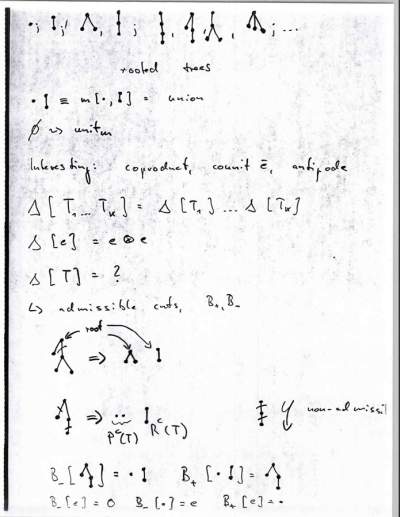 rooted trees
• I ≡ m[•, I] = union
∅ ~> unit m
Interesting: coproduct, counit ē, antipode
Δ[T₁ ... Tₖ] = Δ[T₁] ... Δ[Tₖ]
Δ[e] = e ⊗ e
Δ[T] = ?
↳ admissible cuts, B₊, B₋
root
=>
=> P^c(T) R^c(T)
non-admissi
B₋[ ] = • I B₊[• I] =
B₋[e] = 0 B₋[•] = e B₊[e] = •